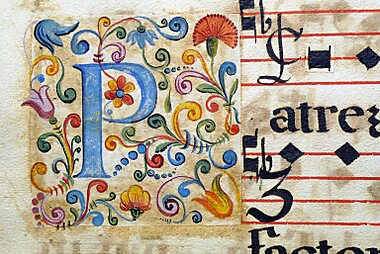 Patreꝫ
factor